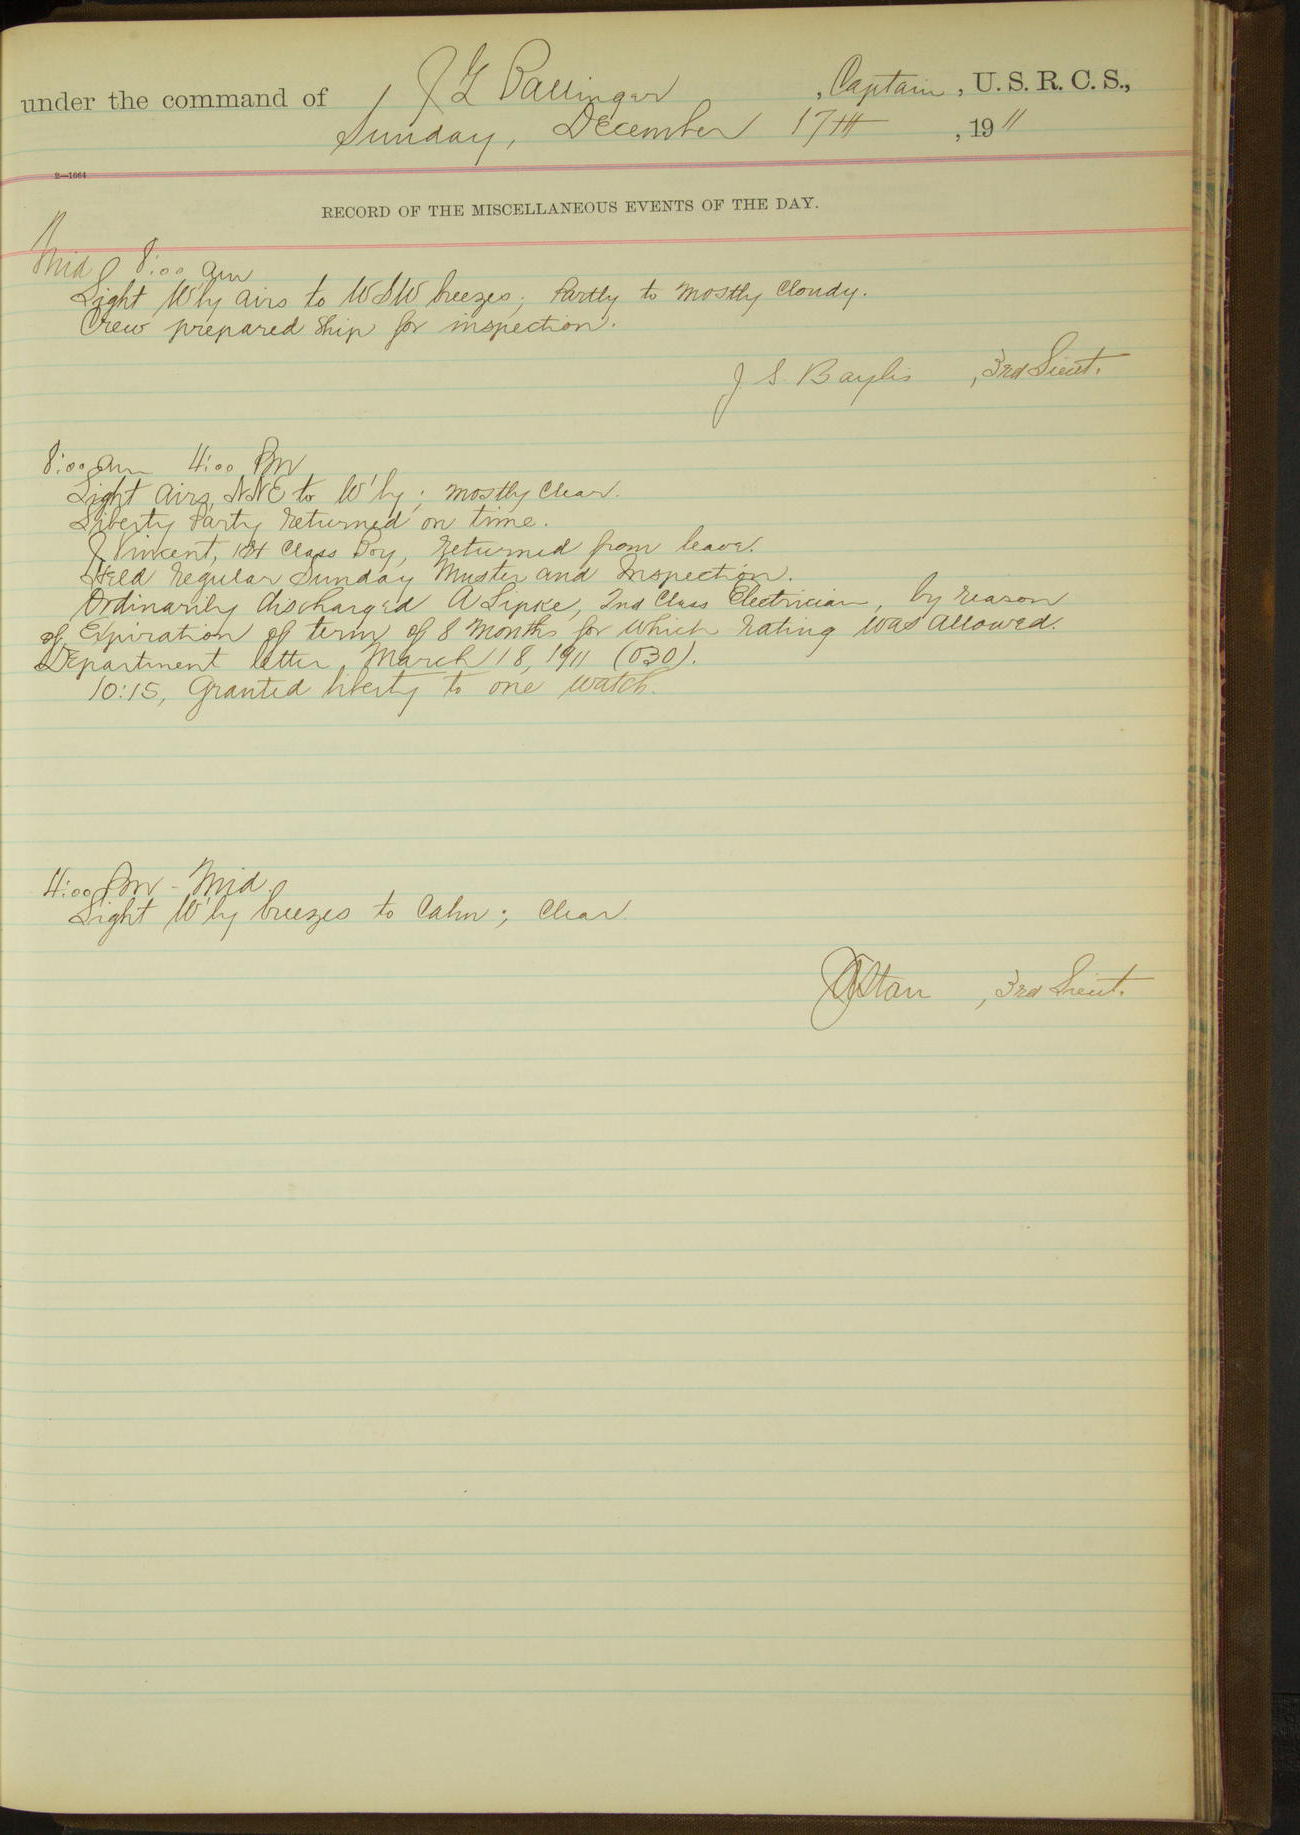 under the command of J G Ballinger, Captain, U. S. R. C. S.,
Sunday, December 17th, 1911
2—1664
RECORD OF THE MISCELLANEOUS EVENTS OF THE DAY.
Mid 8:00 am
Light W'ly airs to WSW breezes; Partly to mostly cloudy.
Crew prepared ship for inspection.
J. S. Baylis, 3rd Lieut.
8:00 am 4:00 Pm
Light airs, NNE to W'ly; mostly clear.
Liberty Party returned on time.
J Vincent, 1st Class Boy, returned from leave.
Held regular Sunday Muster and Inspection.
Ordinarily discharged A Lipke, 2nd Class Electrician, by reason
of Expiration of term of 8 months for which rating was allowed.
Department letter, March 18, 1911 (030).
10:15, Granted liberty to one watch.
4:00 Pm - Mid.
Light W'ly breezes to Calm; Clear
, 3rd Lieut.